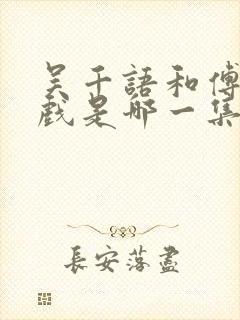 吴千語和傅
戲是哪一集
長安落盡